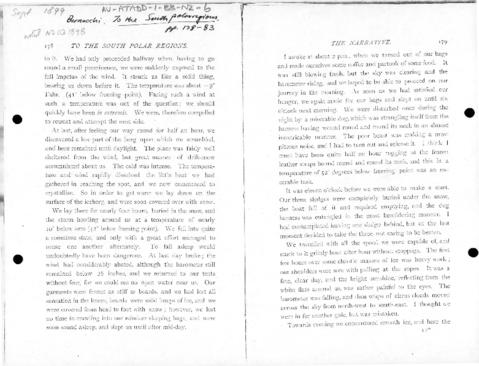 Sept 1899
NV-ATABD-1-BB-NZ-6
Bernacchi. To the South Polar regions.
pp. 178-83
178 TO THE SOUTH POLAR REGIONS.
to it. We had only proceeded halfway when, having to go
round a small prominence, we were suddenly exposed to the
full impetus of the wind. It struck us like a solid thing,
bearing us down before it. The temperature was about −9°
Fahr. (41° below freezing point). Facing such a wind at
such a temperature was out of the question; we should
quickly have been frozen. We were, therefore compelled
to retreat and attempt the next side.
At last, after feeling our way round for half an hour, we
discovered a low part of the berg upon which we scrambled,
and here remained until daylight. The place was fairly well
sheltered from the wind, but great masses of drift-snow
accumulated about us. The cold was intense. The tempera-
ture and wind rapidly dissolved the little heat we had
gathered in reaching the spot, and we now commenced to
crystallise. So in order to get warm we lay down on the
surface of the iceberg, and were soon covered with snow.
We lay there for nearly four hours, buried in the snow, and
the storm howling around us at a temperature of nearly
10° below zero (42° below freezing point). We fell into quite
a senseless state, and only with a great effort managed to
rouse one another alternately. To fall asleep would
undoubtedly have been dangerous. At last day broke; the
wind had considerably abated, although the barometer still
remained below 28 inches, and we returned to our tents
without fear, for we could see no open water near us. Our
garments were frozen as stiff as boards, and we had lost all
sensation in the knees, beards were solid lumps of ice, and we
were covered from head to foot with snow; however, we lost
no time in crawling into our reindeer sleeping bags, and were
soon sound asleep, and slept on until after mid-day.
THE NARRATIVE. 179
I awoke at about 2 p.m., when we turned out of our bags
and made ourselves some coffee and partook of some food. It
was still blowing fresh, but the sky was clearing and the
barometer rising, and we hoped to be able to proceed on our
journey in the morning. As soon as we had satisfied our
hunger, we again made for our bags and slept on until six
o'clock next morning. We were disturbed once during the
night by a miserable dog, which was strangling itself from the
harness having wound round and round its neck in an almost
inextricable manner. The poor beast was making a most
piteous noise, and I had to turn out and release it. I think I
must have been quite half an hour tugging at the frozen
leather straps bound round and round its neck, and this in a
temperature of 52 degrees below freezing point was an exe-
crable task.
It was eleven o'clock before we were able to make a start.
Our three sledges were completely buried under the snow,
the boat full of it and required emptying, and the dog
harness was entangled in the most bewildering manner. I
had contemplated leaving one sledge behind, but at the last
moment decided to take the three, not caring to be beaten.
We travelled with all the speed we were capable of, and
stuck to it grimly hour after hour without stoppage. The first
few hours over some chaotic masses of ice was heavy work;
our shoulders were sore with pulling at the ropes. It was a
fine, clear day, and the bright sunshine, reflecting from the
white floes around us, was rather painful to the eyes. The
barometer was falling, and thin wisps of cirrus clouds moved
across the sky from north-west to south-east. I thought we
were in for another gale, but was mistaken.
Towards evening we encountered smooth ice, and here the